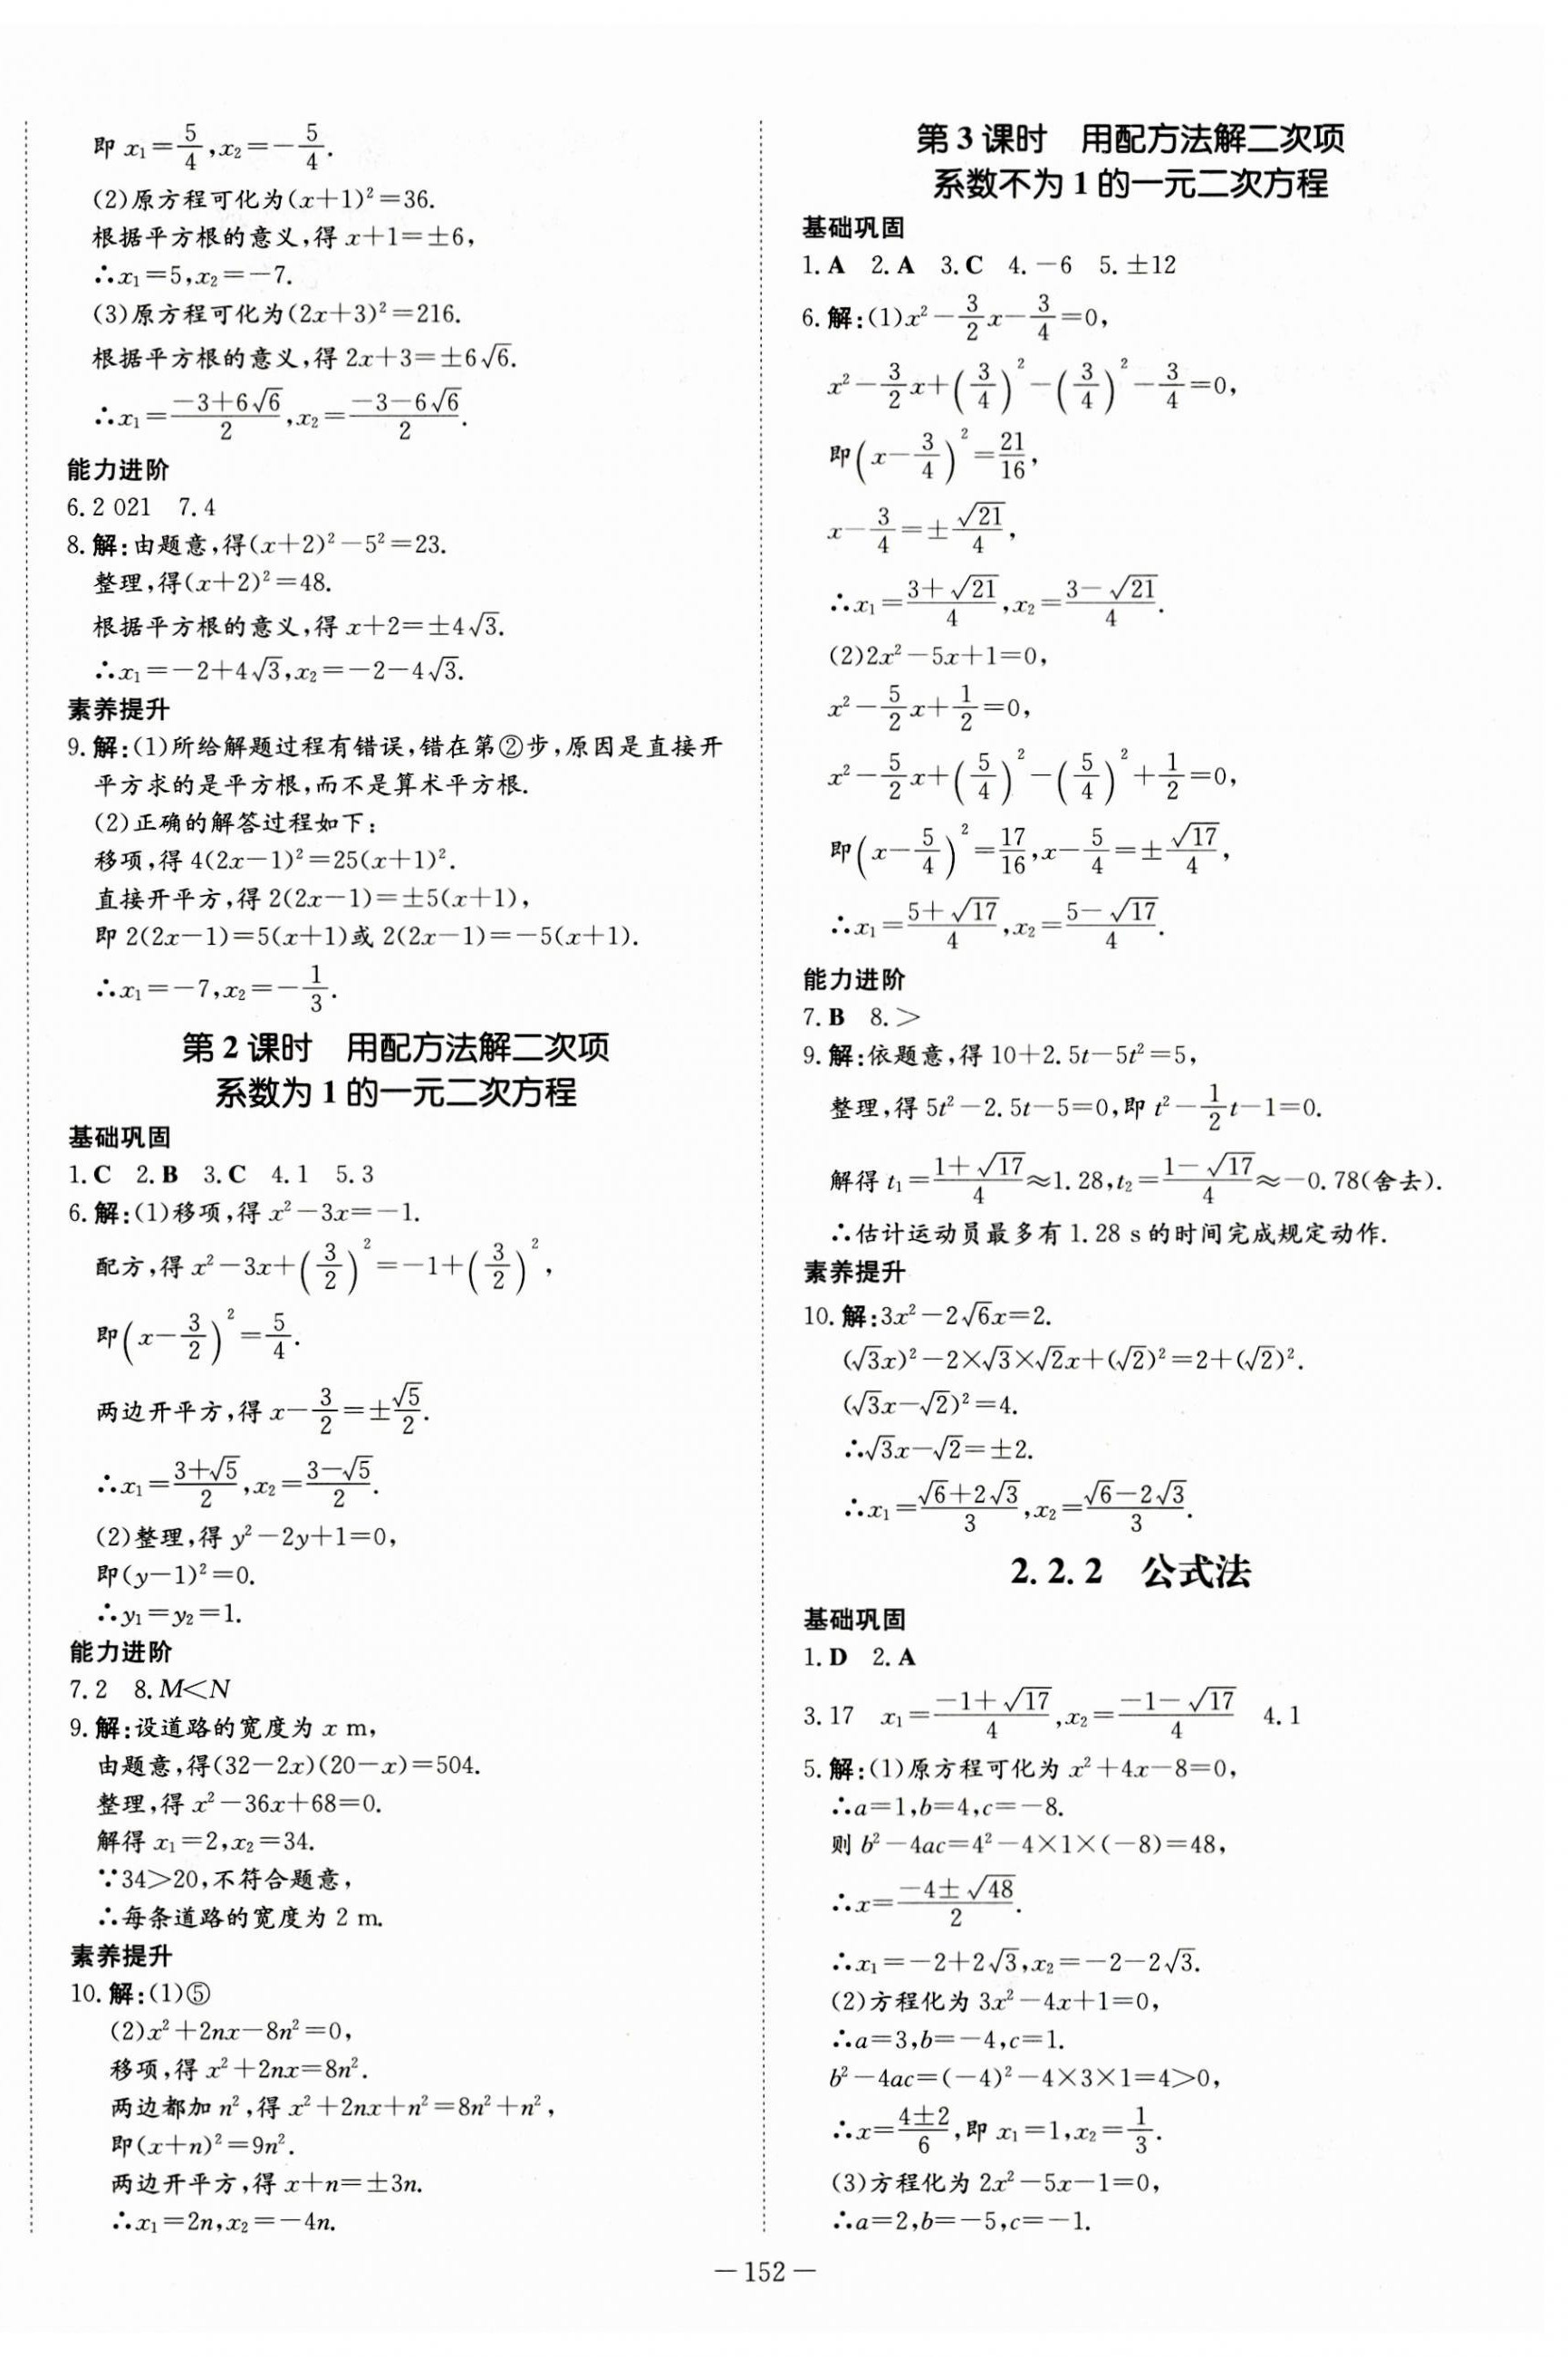 即 x₁=5/4,x₂=-5/4.
(2)原方程可化为(x+1)²=36.
根据平方根的意义,得 x+1=±6,
∴x₁=5,x₂=-7.
(3)原方程可化为(2x+3)²=216.
根据平方根的意义,得 2x+3=±6√6.
∴x₁=(-3+6√6)/2,x₂=(-3-6√6)/2.
能力进阶
6.2 021　7.4
8.解:由题意,得(x+2)²-5²=23.
整理,得(x+2)²=48.
根据平方根的意义,得 x+2=±4√3.
∴x₁=-2+4√3,x₂=-2-4√3.
素养提升
9.解:(1)所给解题过程有错误,错在第②步,原因是直接开
平方求的是平方根,而不是算术平方根.
(2)正确的解答过程如下:
移项,得 4(2x-1)²=25(x+1)².
直接开平方,得 2(2x-1)=±5(x+1),
即 2(2x-1)=5(x+1)或 2(2x-1)=-5(x+1).
∴x₁=-7,x₂=-1/3.
第 2 课时　用配方法解二次项
系数为 1 的一元二次方程
基础巩固
1.C　2.B　3.C　4.1　5.3
6.解:(1)移项,得 x²-3x=-1.
配方,得 x²-3x+(3/2)²=-1+(3/2)²,
即(x-3/2)²=5/4.
两边开平方,得 x-3/2=±√5/2.
∴x₁=(3+√5)/2,x₂=(3-√5)/2.
(2)整理,得 y²-2y+1=0,
即(y-1)²=0.
∴y₁=y₂=1.
能力进阶
7.2　8.M<N
9.解:设道路的宽度为 x m,
由题意,得(32-2x)(20-x)=504.
整理,得 x²-36x+68=0.
解得 x₁=2,x₂=34.
∵34>20,不符合题意,
∴每条道路的宽度为 2 m.
素养提升
10.解:(1)⑤
(2)x²+2nx-8n²=0,
移项,得 x²+2nx=8n².
两边都加 n²,得 x²+2nx+n²=8n²+n²,
即(x+n)²=9n².
两边开平方,得 x+n=±3n.
∴x₁=2n,x₂=-4n.
第 3 课时　用配方法解二次项
系数不为 1 的一元二次方程
基础巩固
1.A　2.A　3.C　4.-6　5.±12
6.解:(1)x²-3/2x-3/4=0,
x²-3/2x+(3/4)²-(3/4)²-3/4=0,
即(x-3/4)²=21/16,
x-3/4=±√21/4,
∴x₁=(3+√21)/4,x₂=(3-√21)/4.
(2)2x²-5x+1=0,
x²-5/2x+1/2=0,
x²-5/2x+(5/4)²-(5/4)²+1/2=0,
即(x-5/4)²=17/16,x-5/4=±√17/4,
∴x₁=(5+√17)/4,x₂=(5-√17)/4.
能力进阶
7.B　8.>
9.解:依题意,得 10+2.5t-5t²=5,
整理,得 5t²-2.5t-5=0,即 t²-1/2t-1=0.
解得 t₁=(1+√17)/4≈1.28,t₂=(1-√17)/4≈-0.78(舍去).
∴估计运动员最多有 1.28 s 的时间完成规定动作.
素养提升
10.解:3x²-2√6x=2.
(√3x)²-2×√3×√2x+(√2)²=2+(√2)².
(√3x-√2)²=4.
∴√3x-√2=±2.
∴x₁=(√6+2√3)/3,x₂=(√6-2√3)/3.
2.2.2　公式法
基础巩固
1.D　2.A
3.17　x₁=(-1+√17)/4,x₂=(-1-√17)/4　4.1
5.解:(1)原方程可化为 x²+4x-8=0,
∴a=1,b=4,c=-8.
则 b²-4ac=4²-4×1×(-8)=48,
∴x=(-4±√48)/2.
∴x₁=-2+2√3,x₂=-2-2√3.
(2)方程化为 3x²-4x+1=0,
∴a=3,b=-4,c=1.
b²-4ac=(-4)²-4×3×1=4>0,
∴x=(4±2)/6,即 x₁=1,x₂=1/3.
(3)方程化为 2x²-5x-1=0,
∴a=2,b=-5,c=-1.
— 152 —